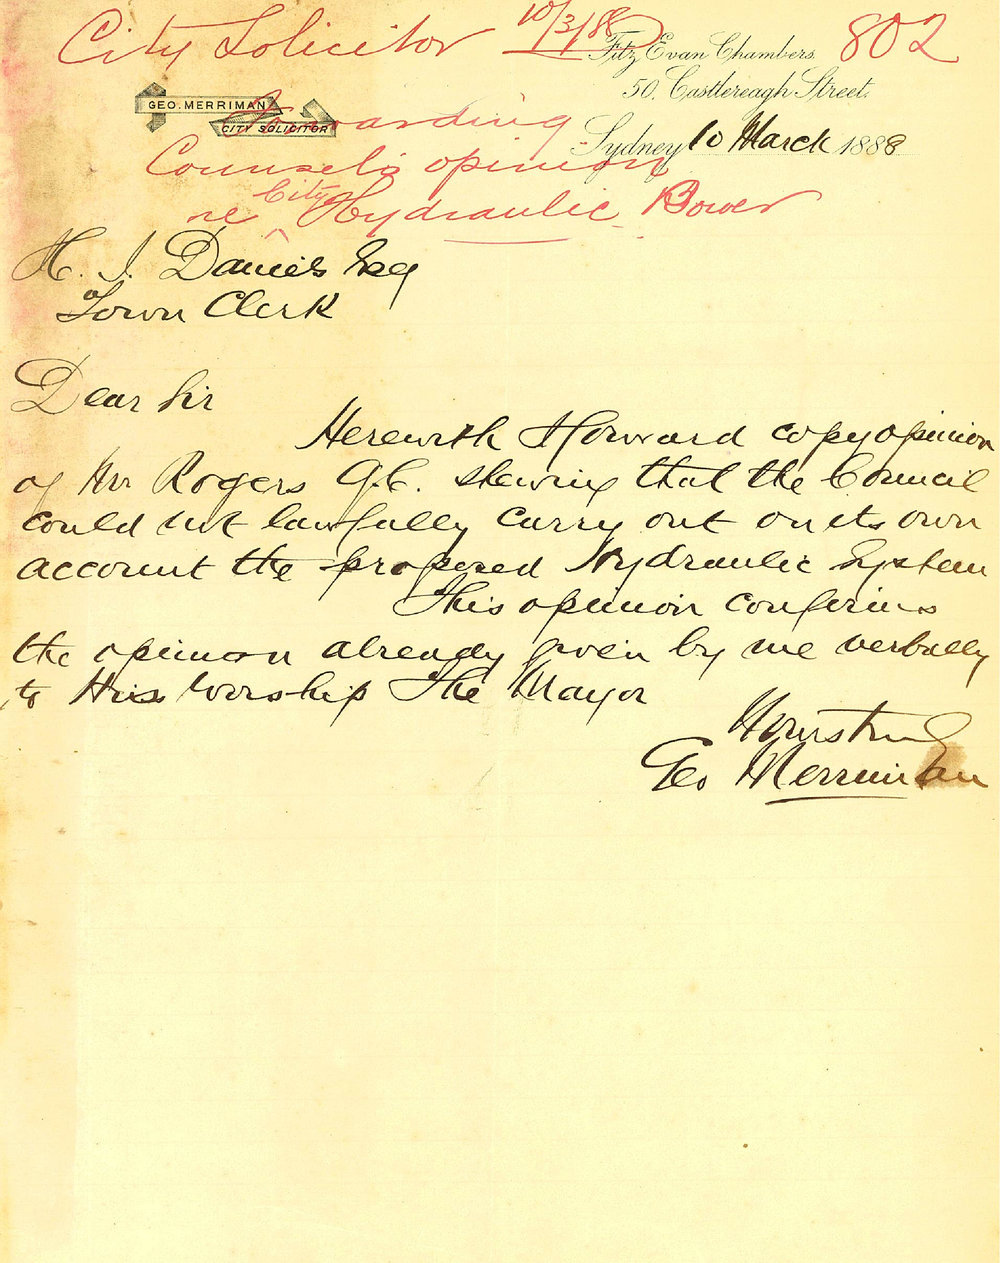 City Solicitor 10/3/88 802
Fitz Evan Chambers.
50, Castlereagh Street,
GEO. MERRIMAN
CITY SOLICITOR
Forwarding
Sydney 10 March 1888
Counsel's opinion
re City Hydraulic Power
H. J. Daniels Esq
Town Clerk
Dear Sir
Herewith I forward copy opinion
of Mr Rogers Q.C. shewing that the Council
could not lawfully carry out on its own
account the proposed Hydraulic System
This opinion confirms
the opinion already given by me verbally
to His Worship The Mayor
Yours truly
Geo Merriman